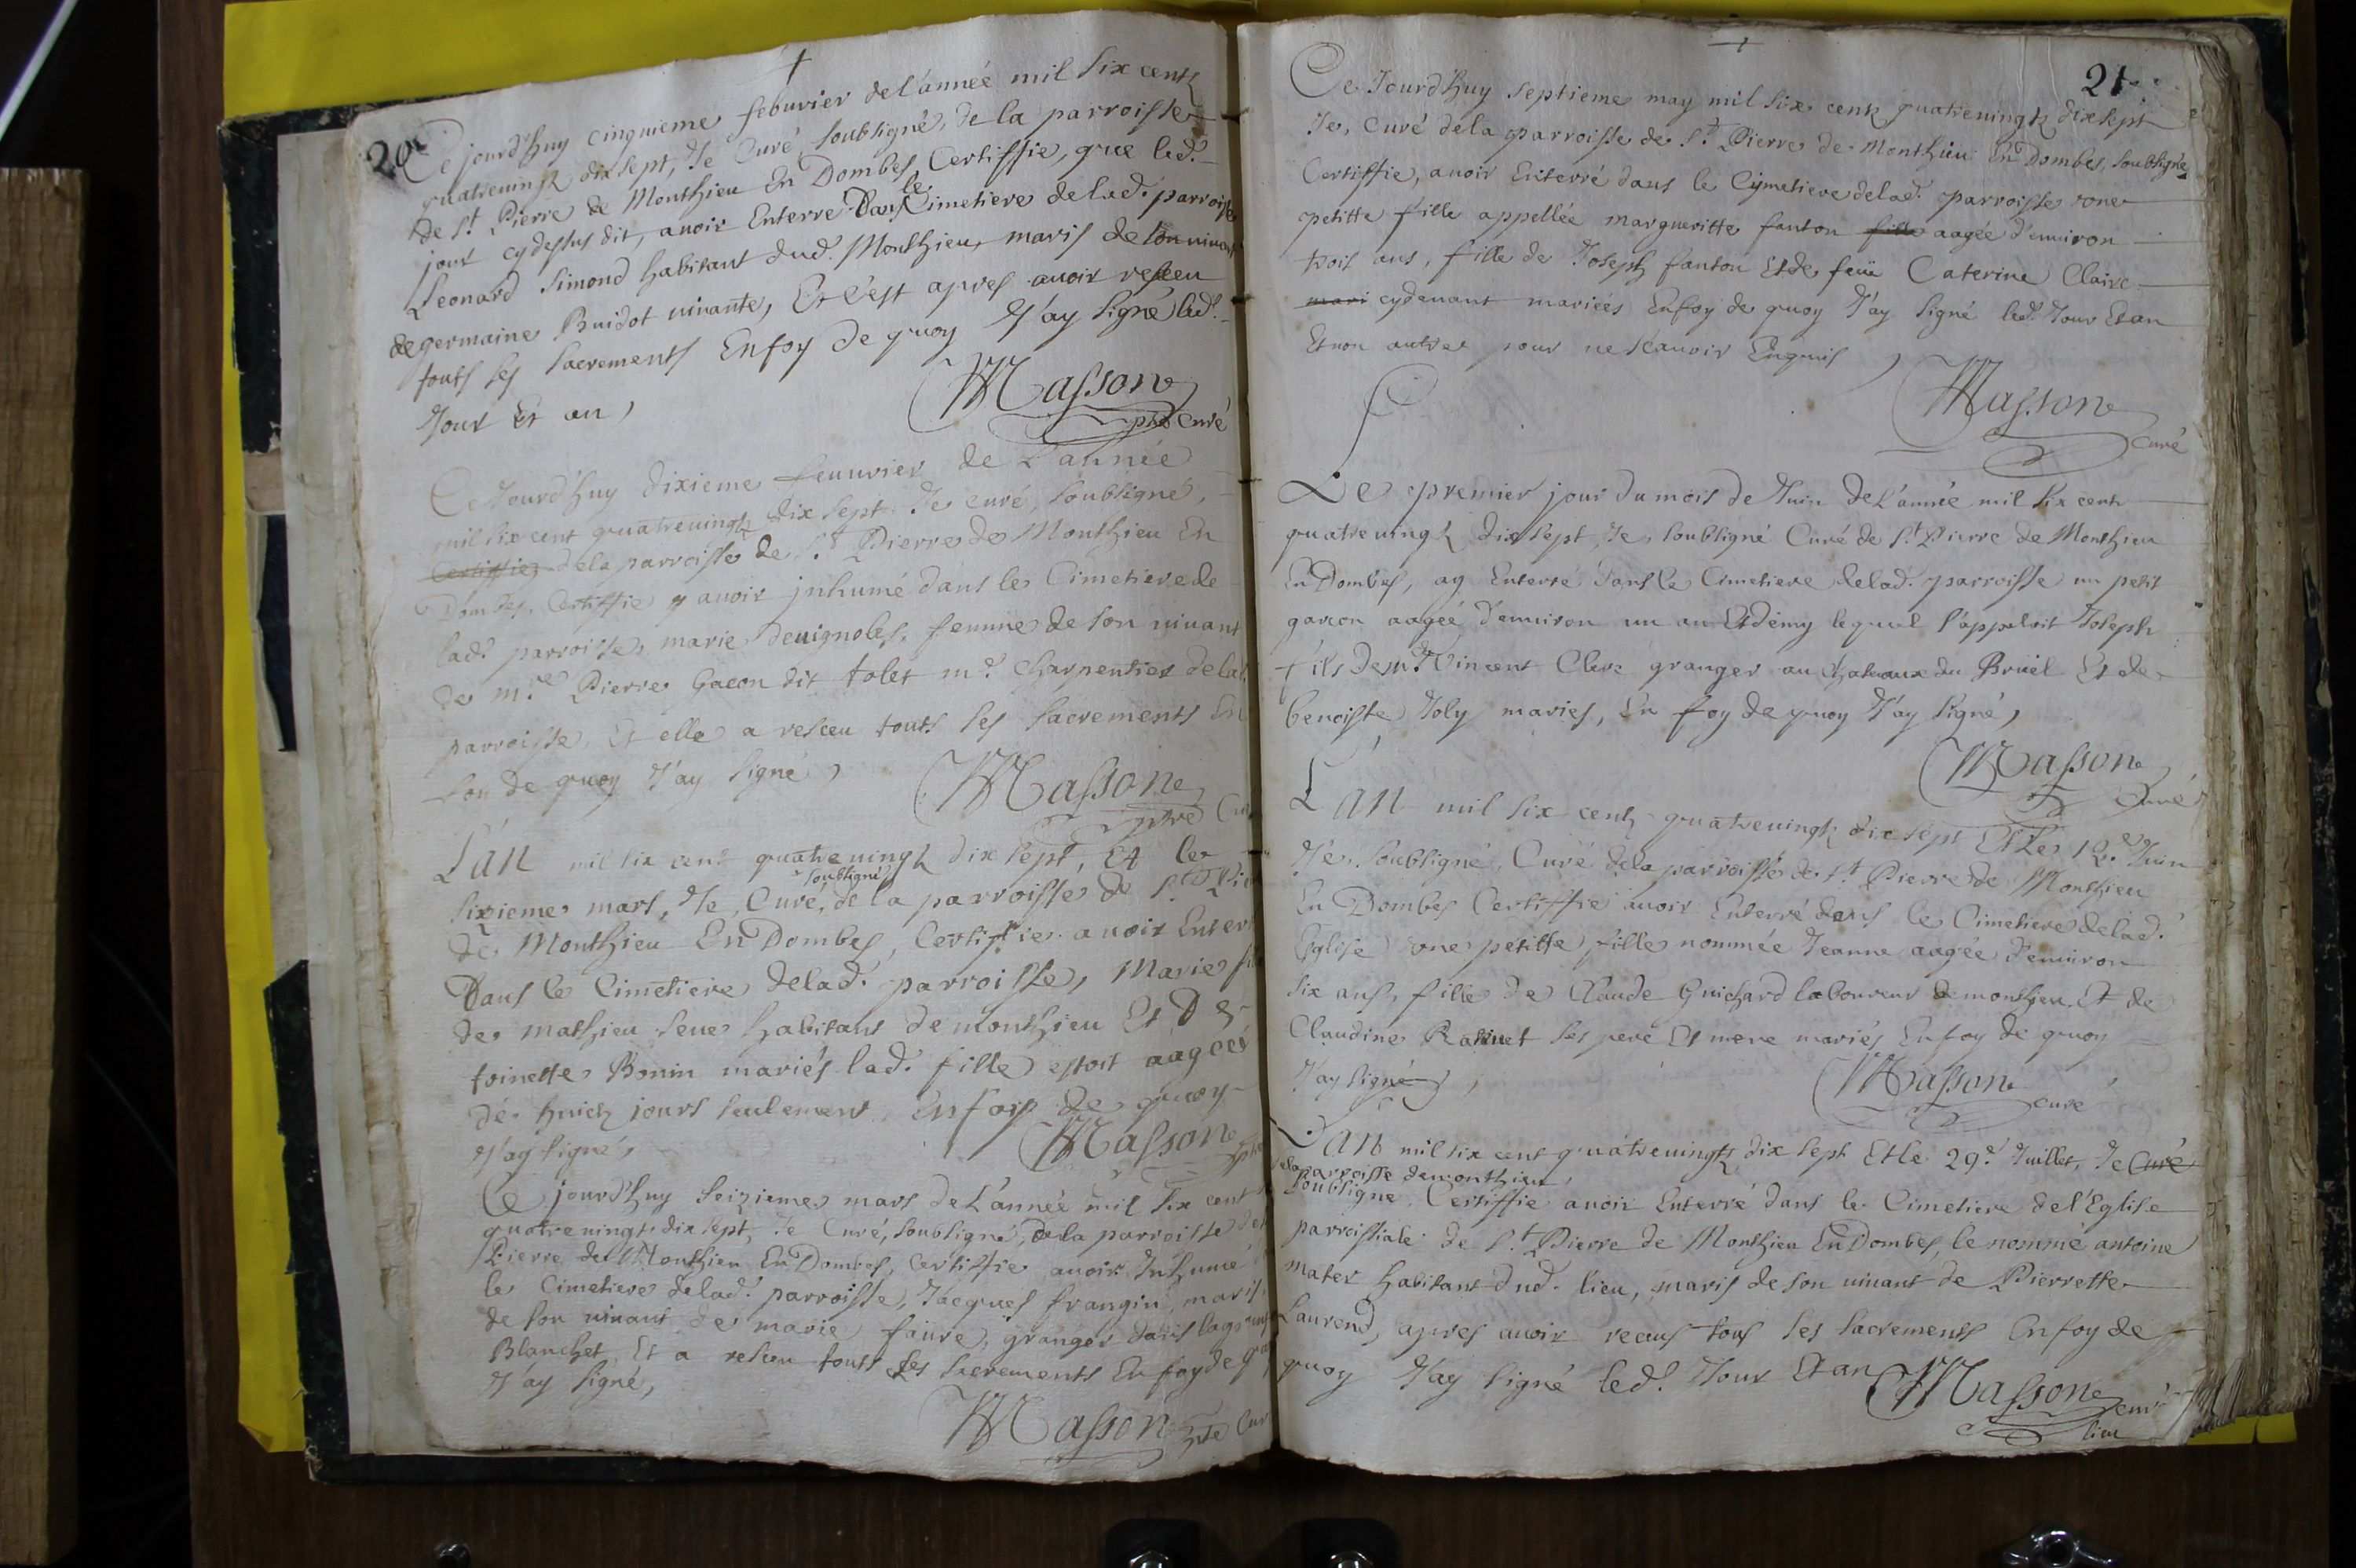 20
Ce jourd'huy cinquieme febuvrier de l'année mil six cents
quatrevingt dix sept, Je Curé soubsigné, de la parroisse
de St. Pierre de Monthieu En Dombes Certiffie, que led.
jour cydessus dit, avoir Enterré Dans le Cimetiere de lad. parroisse
Leonard Simond habitant dud. Monthieu, maris de son vivant
de germaine Buidot vivante, Et C'est apres avoir resceu
touts ses sacrements En foy de quoy J'ay signé led.
Jour Et an,
Masson
ptre Curé
Ce Jourd'huy dixieme feuvrier de L'année
mil six cent quatrevingt dix sept Je curé, soubsigné,
Certiffie de la parroisse de St. Pierre de Monthieu En
Dombes, Certiffie avoir jnhumé dans le Cimetiere de
lad. parroisse, marie devignoles, femme de son vivant
de mre Pierre Gacon dit tolet md. Charpentier de lad.
parroisse, Et elle a resceu touts ses sacrements En
foy de quoy J'ay signé,
Masson
ptre Cu
L'an mil six cent quatrevingt dix sept, Et le
sixieme mars, Je, Curé, soubsigné de la parroisse de St. Pie
de Monthieu En Dombes, Certiffie avoir Enter
Dans le Cimetiere de lad. parroisse, Marie fi
de mathieu seve habitant de monthieu Et De
toinette Bonin mariés lad. fille estoit aagée
de huict jours seulement, En foy de quoy
J'ay signé,
Masson
Ce jourd'huy seizieme mars de L'année mil six cent
quatrevingt dix sept, Je Curé, soubsigné, de la parroisse de
Pierre de Monthieu En Dombes, Certiffie avoir Inhumé
le Cimetiere de lad. parroisse, Jacques frangin, maris
de son vivant de marie faure, granger dans la grange
Blanchet, Et a resceu touts ses sacrements En foy de qu
J'ay signé,
Masson ptre Cur
21
Ce Jourd'huy septieme may mil six cent quatrevingt dix sept
Je, Curé de la parroisse de St. Pierre de Monthieu En Dombes, soubsigné
Certiffie, avoir Enterré dans le Cymetiere de lad. parroisse vne
petitte fille appellée margueritte fanton fille aagée d'environ
trois ans, fille de Joseph fanton Et de feüe Caterine Claire
mari cydevant mariées En foy de quoy J'ay signé led. Jour Et an
Et non autre pour ne scavoir Enquis,
Masson
Curé
Le premier jour du mois de Juin de L'année mil six cent
quatrevingt dix sept, Je, soubsigné Curé de St. Pierre de Monthieu
En Dombes, ay Enterré dans le Cimetiere de lad. parroisse un petit
garcon aagée d'environ un an Et demy lequel s'appeloit Joseph
fils De Vincent Clere granger au Chateaux du Breüil Et de
benoiste Joly mariés, En foy de quoy J'ay signé,
Masson
Curé
L'an mil six cent quatrevingt dix sept Et Le 12e Juin
Je, soubsigné, Curé de la parroisse de St. Pierre de Monthieu
En Dombes Certiffie avoir Enterré dans le Cimetiere de lad.
Eglise vne petitte fille nommée Jeanne aagée d'environ
six ans, fille de Claude Guichard laboureur de monthieu, Et de
Claudine Ravinet ses pere Et mere mariés En foy de quoy
J'ay signé,
Masson
curé
L'an mil six cent quatrevingt dix sept Et le 29e Juillet, Je Curé
de la parroisse de monthieu
soubsigné, Certiffie avoir Enterré dans le Cimetiere de l'Eglise
parroissiale de St. Pierre de Monthieu En Dombes, le nommé antoine
mater habitant dud. lieu, maris de son vivant de Pierrette
Laurend, apres avoir receus tous ses sacrements En foy de
quoy J'ay signé led. Jour Et an
Masson curé
lieu